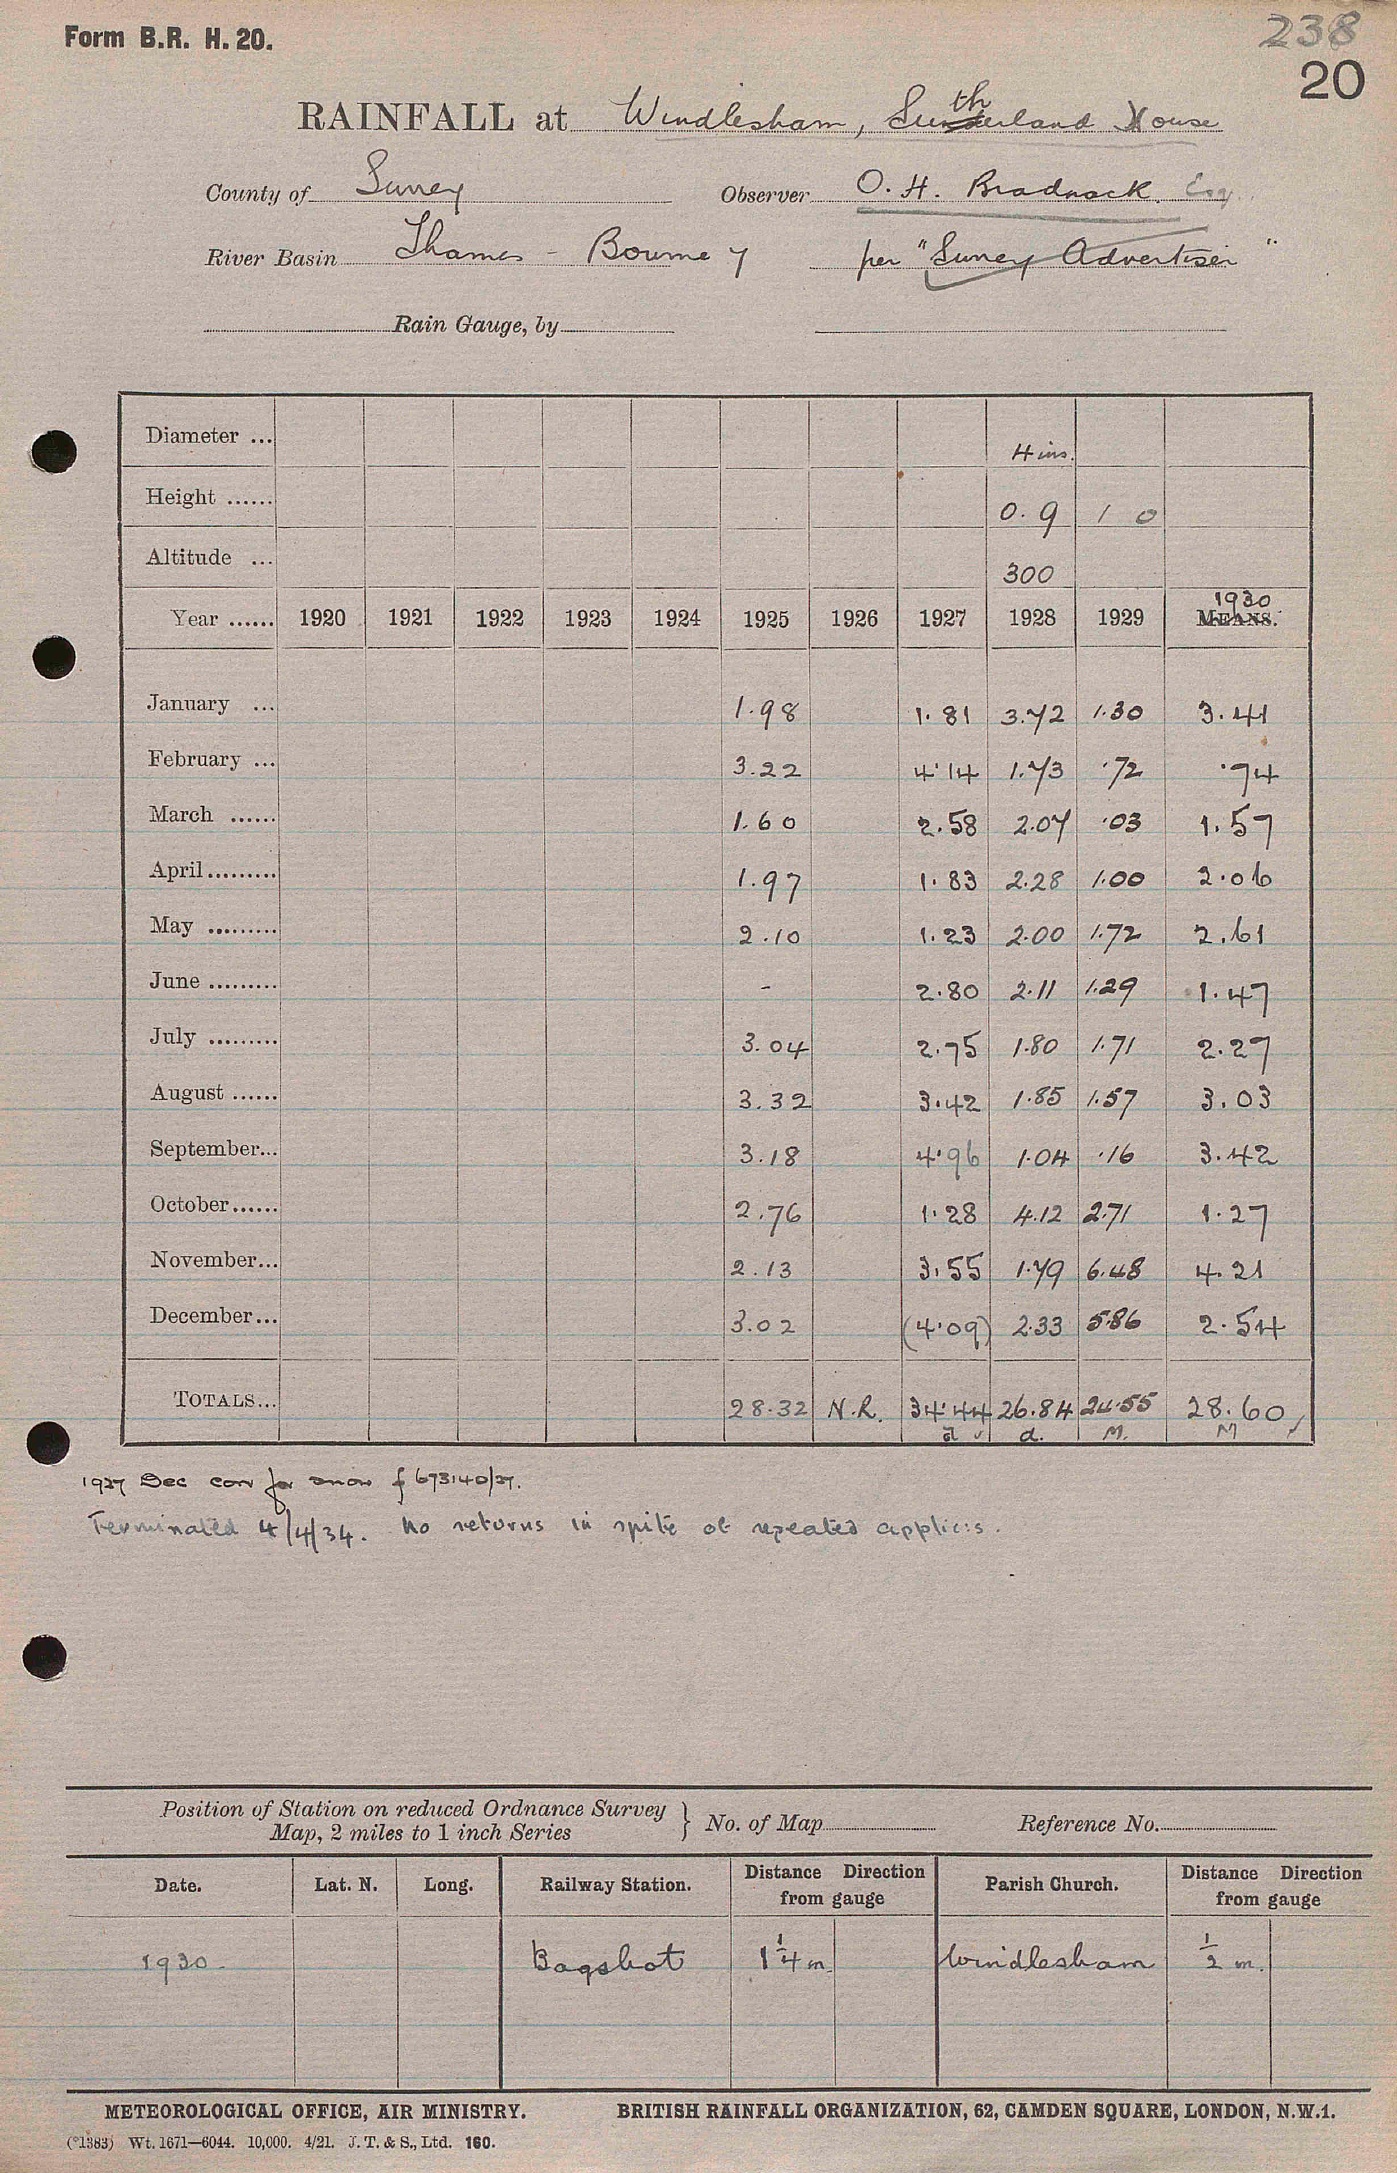 Form B.R. H. 20.
238
20
RAINFALL at Windlesham, Sutherland House
County of Surrey Observer O. H. Bradnack. Esq.
River Basin Thames - Bourne y per "Surrey Advertiser"
Rain Gauge, by
Diameter ... 4 ins.
Height ...... 0. 9 1 0
Altitude ... 300
1930
Year ...... 1920 1921 1922 1923 1924 1925 1926 1927 1928 1929 MEANS.
January ... 1.98 1.81 3.72 1.30 3.41
February ... 3.22 4.14 1.73 .72 .74
March ...... 1.60 2.58 2.07 .03 1.57
April ......... 1.97 1.83 2.28 1.00 2.06
May ......... 2.10 1.23 2.00 1.72 2.61
June ......... - 2.80 2.11 1.29 1.47
July ......... 3.04 2.75 1.80 1.71 2.27
August ...... 3.32 3.42 1.85 1.57 3.03
September... 3.18 4.96 1.04 .16 3.42
October...... 2.76 1.28 4.12 2.71 1.27
November... 2.13 3.55 1.79 6.48 4.21
December... 3.02 (4.09) 2.33 5.86 2.54
TOTALS... 28.32 N.R. 34.44 26.84 24.55 28.60
a d. M. M
1927 Dec corr for snow f 673140/27.
Terminated 4/4/34. No returns in spite of repeated applic:s.
Position of Station on reduced Ordnance Survey
Map, 2 miles to 1 inch Series } No. of Map Reference No.
Date. Lat. N. Long. Railway Station. Distance Direction from gauge Parish Church. Distance Direction from gauge
1930. Bagshot 1 1/4 m. Windlesham 1/2 m.
METEOROLOGICAL OFFICE, AIR MINISTRY. BRITISH RAINFALL ORGANIZATION, 62, CAMDEN SQUARE, LONDON, N.W.1.
(°1383) Wt. 1671—6044. 10,000. 4/21. J. T. & S., Ltd. 160.